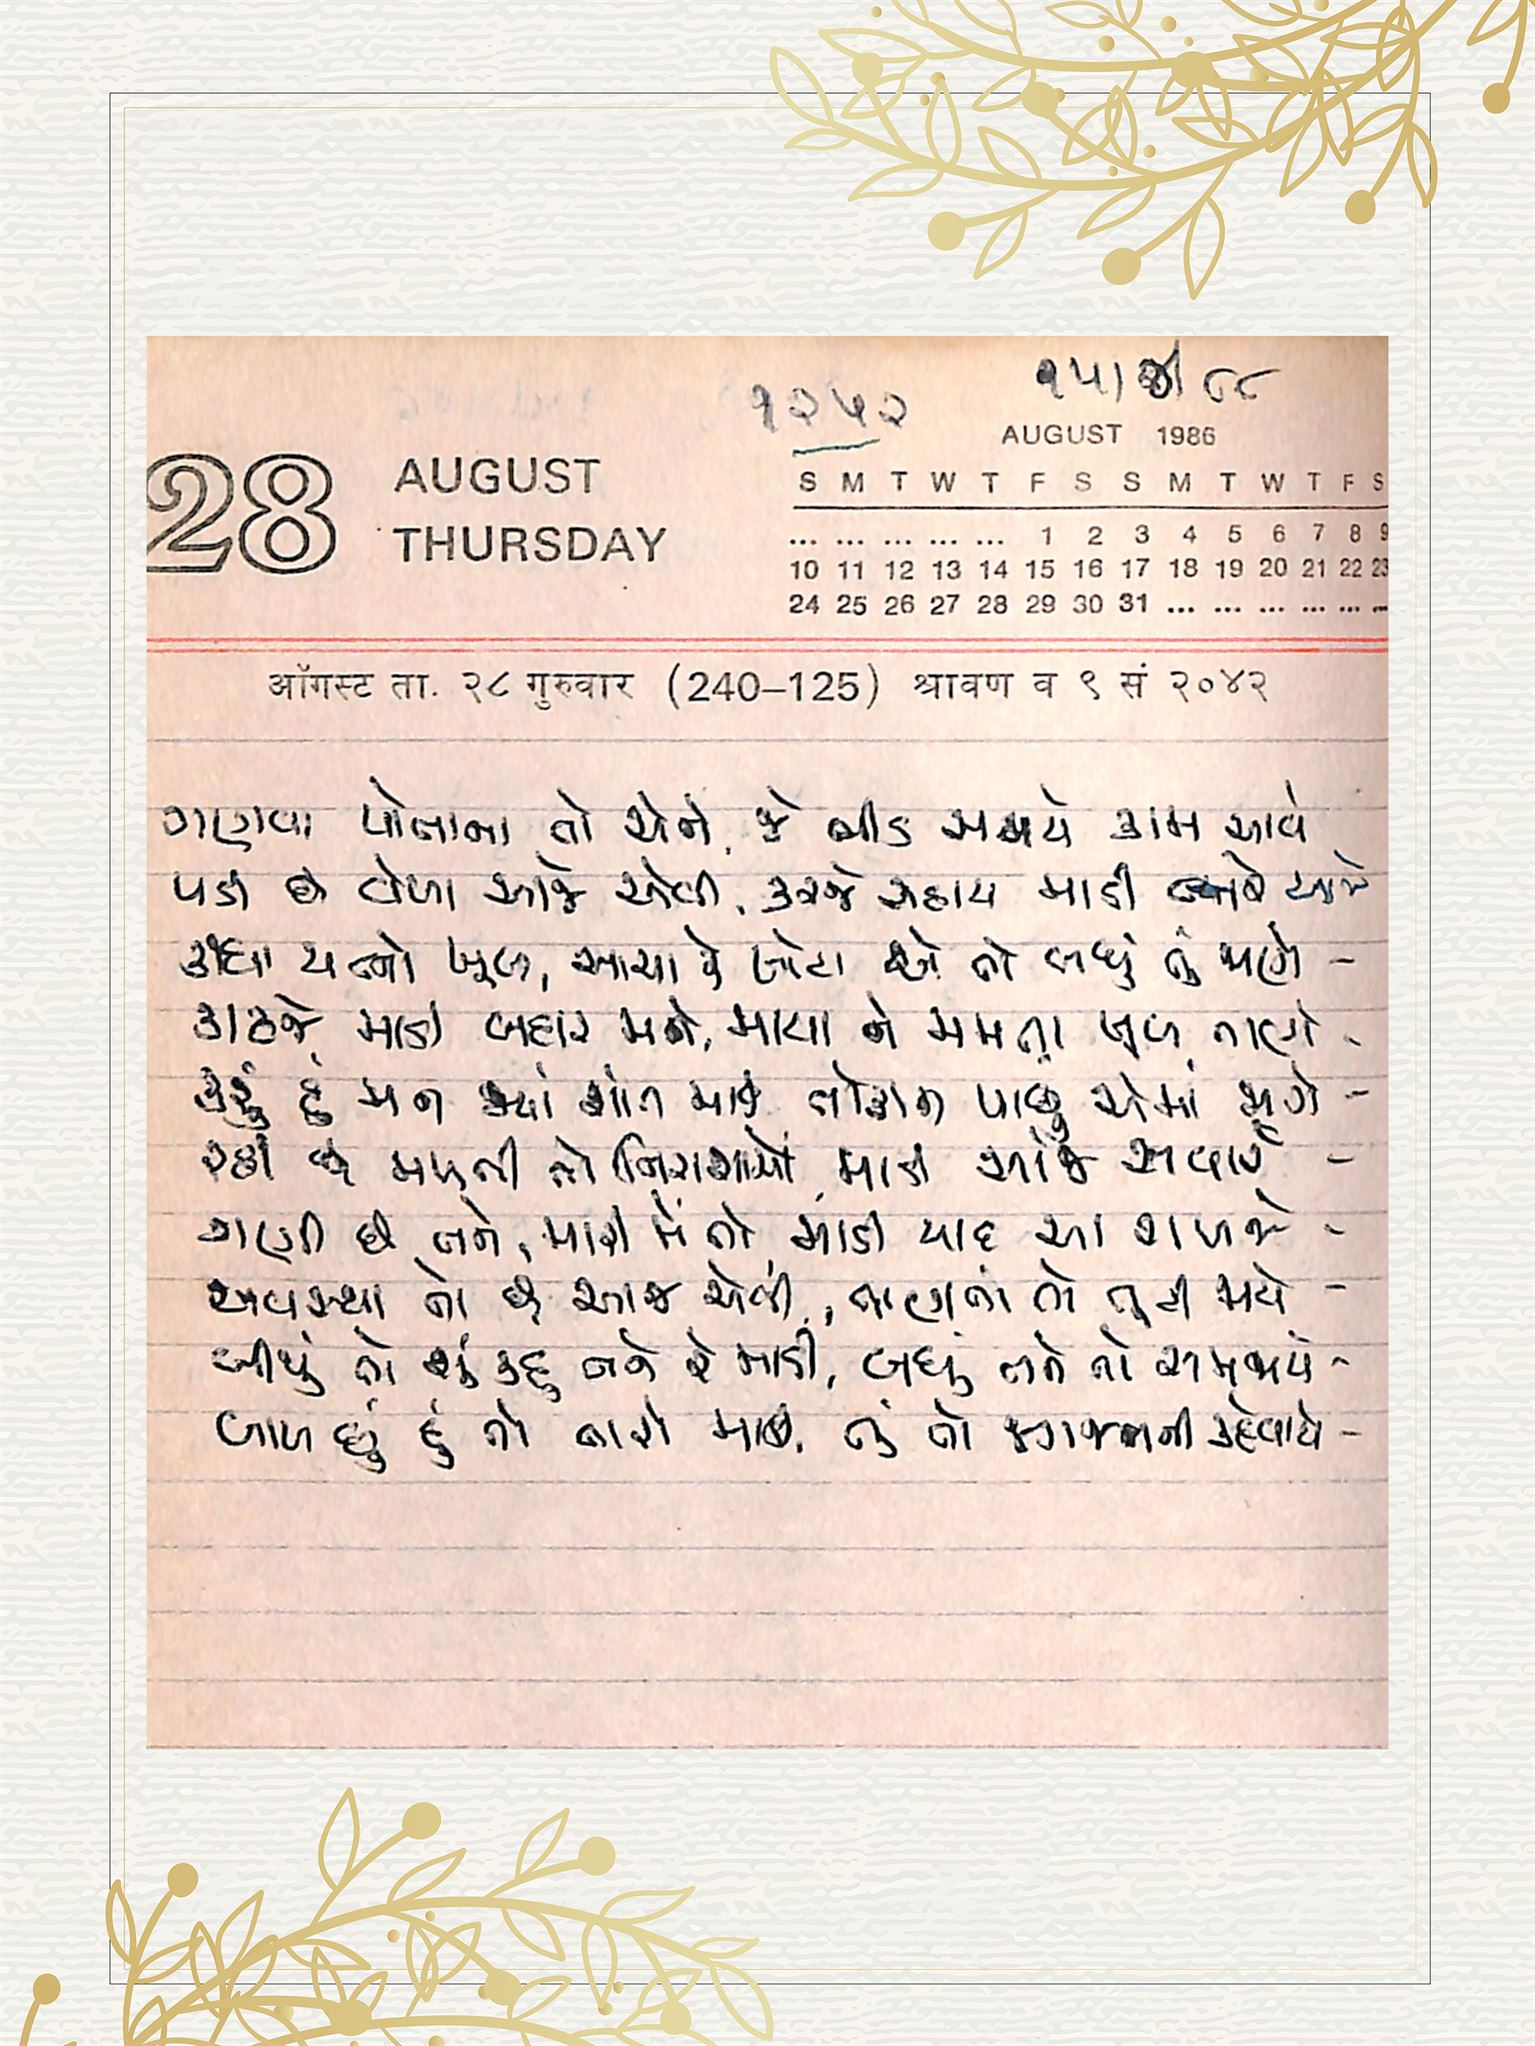 ૧૨૫૨
૧૫/ /૮૮
28 AUGUST
THURSDAY
AUGUST 1986
S M T W T F S S M T W T F S
... ... ... ... ... 1 2 3 4 5 6 7 8 9
10 11 12 13 14 15 16 17 18 19 20 21 22 23
24 25 26 27 28 29 30 31 ... ... ... ... ... ...
ऑगस्ट ता. २८ गुरुवार (240–125) श्रावण व ९ सं २०४२
ગણવા પોતાના તો એને, જે ભીડ સમયે કામ આવે
પડી છે વેળા આજે એવી, કરજે સહાય માડી આજે
કીધા યત્નો ખૂબ, સાચા કે ખોટા એ તો બધું તું જાણે -
કાઢજે માડી બહાર મને, માયા ને મમતા ખૂબ તાણે -
કરું હું મન જ્યાં શાંત માડી, તોફાન પાછું એમાં જાગે -
રહી છે મળતી તો નિરાશાઓ, માડી સાંજ સવારે -
ગણી છે તને, મારી મેં તો માડી યાદ આ રાખજે -
અવસ્થા તો છે આજ એવી, તાણતાં તો તૂટી જાયે -
બીજું તો શું કહું તને રે માડી, બધું તને તો સમજાયે -
બાળ છું હું તો તારો માડી, તું તો જગજનની કહેવાયે -